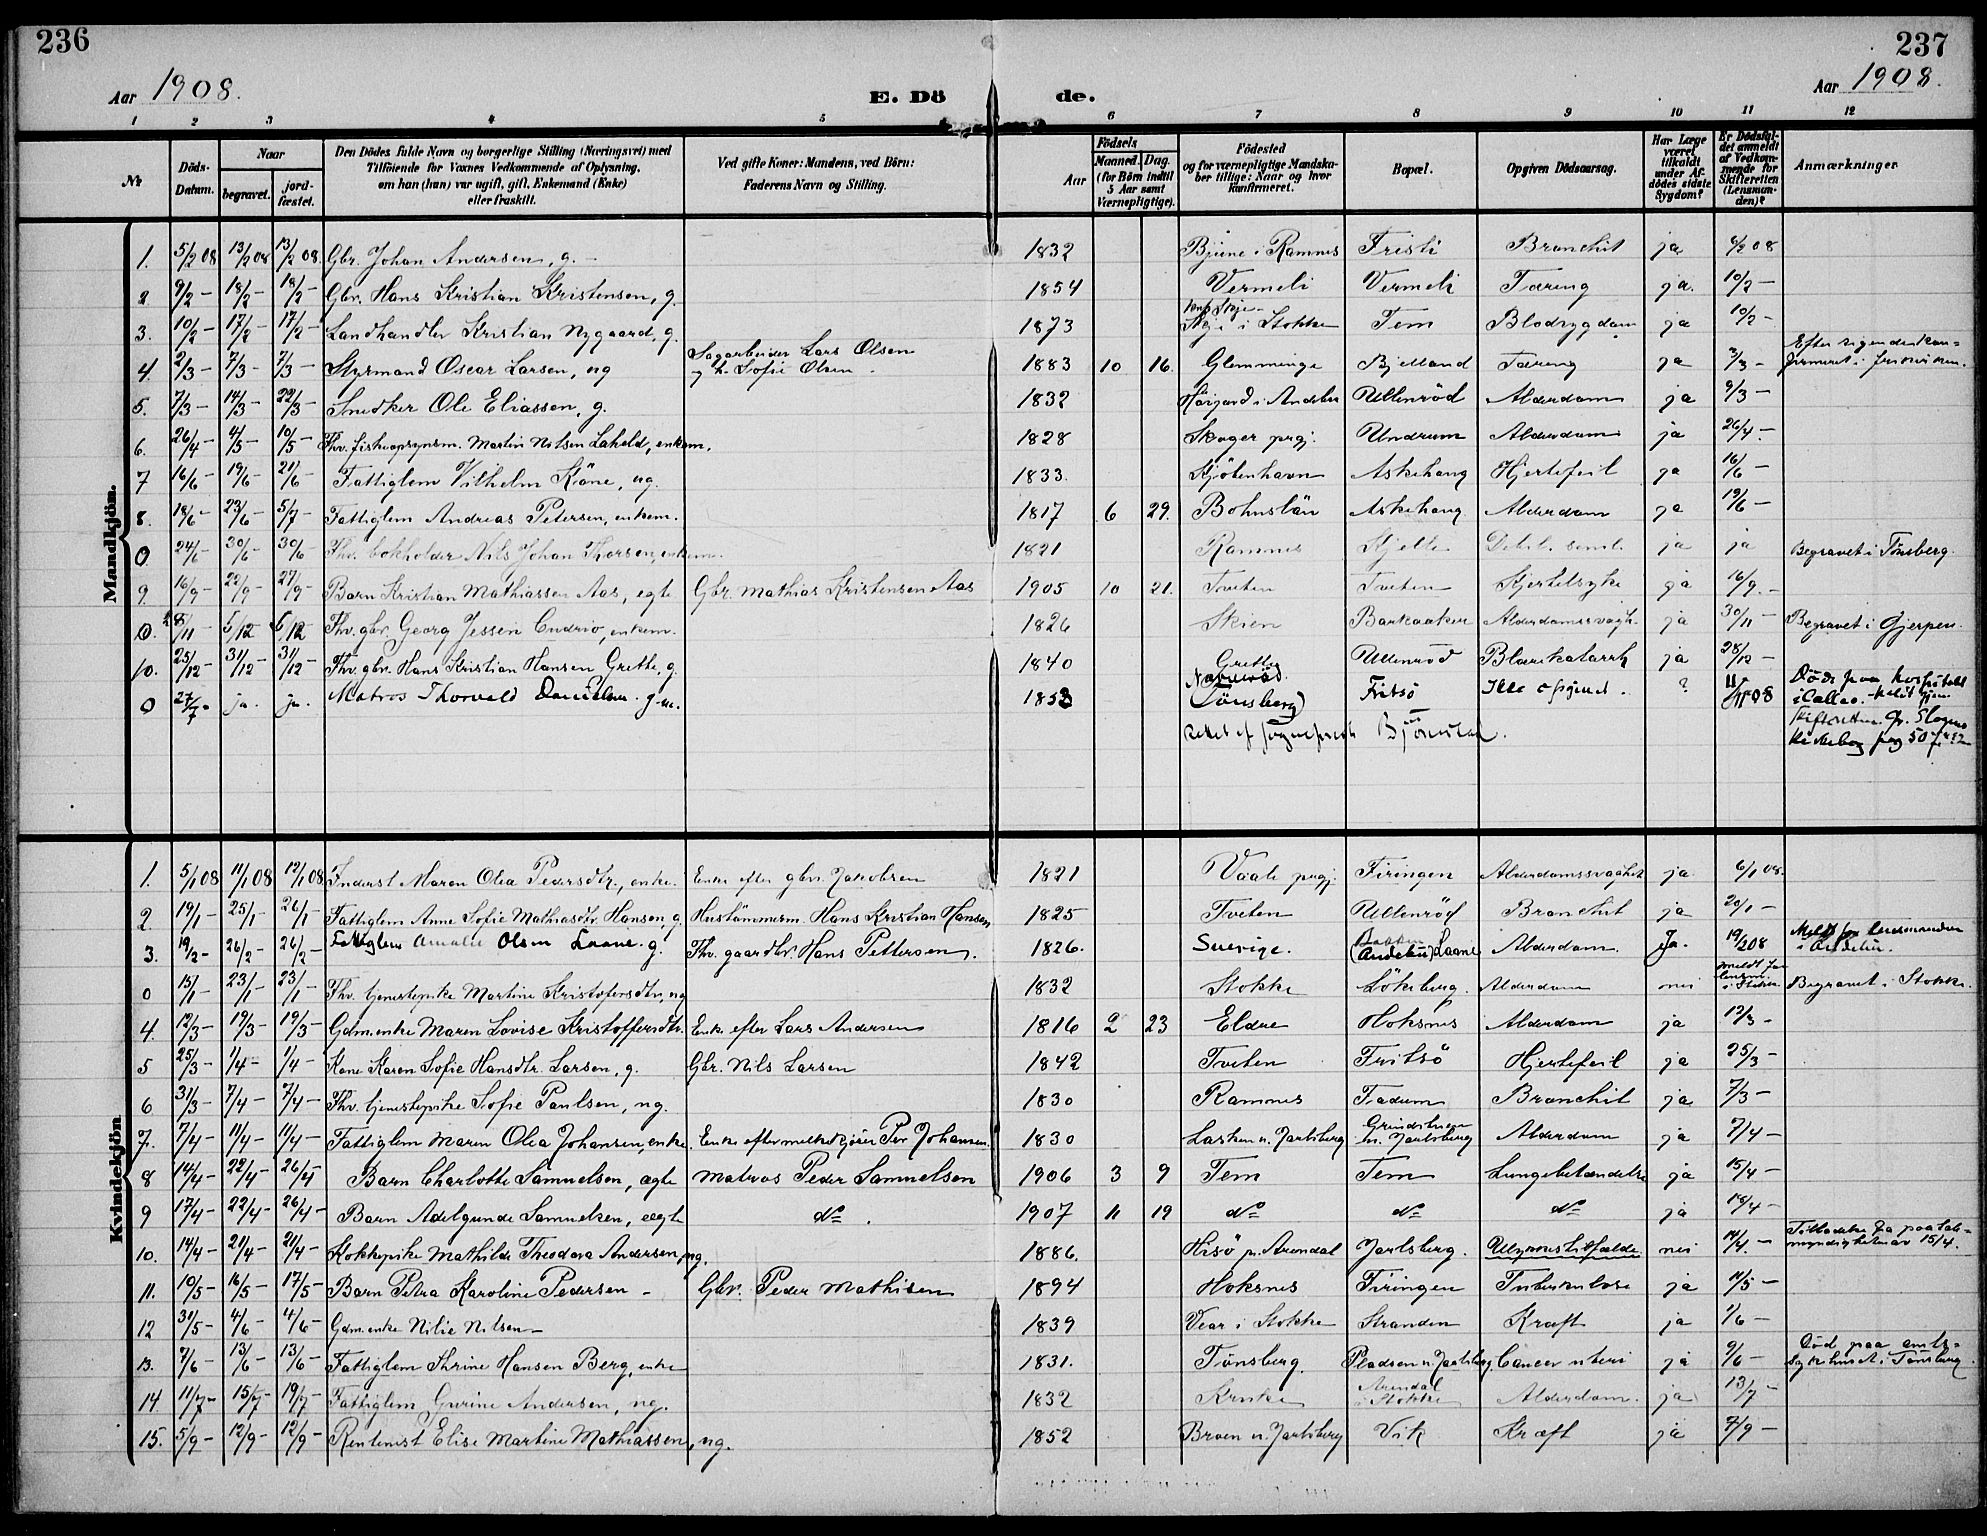 236
237
Aar 1908.
E. Dö de.
Aar 1908.
1 2 3 4 5 6 7 8 9 10 11 12
№
Döds-Datum.
Naar
begravet.
jord-fæstet.
Den Dödes fulde Navn og borgerlige Stilling (Næringsvei) med
Tilföiende for Voxnes Vedkommende af Oplysning,
om han (hun) var ugift, gift, Enkemand (Enke)
eller fraskilt.
Ved gifte Koner: Mandens, ved Börn:
Faderens Navn og Stilling.
Födsels
Aar
Maaned. Dag.
(for Börn indtil
5 Aar samt
Værnepligtige).
Födested
og for værnepligtige Mandska-
ber tillige: Naar og hvor
konfirmeret.
Bopæl.
Opgiven Dödsaarsag.
Har Læge
været
tilkaldt
under Af-
dödes sidste
Sygdom?
Er Dödsfal-
det anmeldt
af Vedkom-
mende for
Skifteretten
(Lensman-
den)?
Anmærkninger
Mandkjön.
1. 5/2 08 13/2 08 13/2 08 Gbr. Johan Andersen, g. - 1832 Bjune i Ramnes Fristi Bronchit ja 6/2 08
2 9/2 - 18/2 - 18/2 - Gbr. Hans Kristian Kristensen, g. 1854 Vermeli Vermeli Tæring ja. 10/2 -
3. 10/2 - 17/2 - 17/2 - Landhandler Kristian Nygaard, g. 1873 Skje i Stokke Tem Blodsygdom ja 10/2 -
4. 2/3 - 7/3 - 7/3 - Styrmand Oscar Larsen, ug Sagarbeider Lars Olsen 1883 10 16. Glemminge Bjelland Tæring ja 3/3 - Efter sigende kon-
og h. Sofie Olsen firmeret i
5. 7/3 - 14/3 - 22/3 - Snedker Ole Eliassen, g. 1832 i Andebu Ullenröd Alderdom ja 9/3 -
6. 26/4 - 4/5 - 10/5 - Fhv. fiskeopsynsm. Martin Nilsen Laheld, enkem. 1828 Skoger prgj. Undrum Alderdom ja 26/4 -
7 16/6 - 19/6 - 21/6 - Fattiglem Vilhelm Kröne, ug. 1833. Kjöbenhavn Askehaug Hjertefeil ja 16/6 -
8. 18/6 - 23/6 - 5/7 - Fattiglem Andreas Petersen, enkem. 1817 6 29. Bohuslän Askehaug Alderdom ja 19/6 -
0 24/6 - 30/6 - 30/6 - Fhv. bokholder Nils Johan Thorsen, enkem. 1821 Ramnes Kjelle Debil. senil. ja ja Begravet i Tönsberg.
9. 16/9 - 22/9 - 27/9 - Barn Kristian Mathiassen Aas, egte Gbr. Mathias Kristensen Aas 1905 10 21. Tveten Tveten Kjertelsyke ja 16/9. -
0. 28/11 - 5/12 - 5/12 - Fhv. gbr. Georg Jessen Cudrio, enkem. 1826 Skien Barkaaker Alderdomssvagh. ja 30/11 - Begravet i Gjerpen.
10. 25/12 - 31/12 - 31/12 - Fhv. gbr. Hans Kristian Hansen Grette, g. 1840 Grette Ullenröd Blærekatarrh ja 28/12 -
0 27/7 - ja - ja - Matros Thorvald Danielsen g.m. 1853 (Tönsberg) Fritsö Ikke opgivet. ? 11/11 08 Döde paa hospitalet
i Callao.
Björnstad.
Kvindekjön
1. 5/1 08 11/1 08 12/1 08 Inderst Maren Olea Pedersdtr., enke. Enke efter gbr. Jakobsen 1821 Vaale prgj. Firingen Alderdomssvaghet ja 6/1 08.
2 19/1 - 25/1 - 26/1 - Fattiglem Anne Sofie Mathiasdtr. Hansen, g. Hustömmerm. Hans Kristian Hansen 1825 Tveten Ullenröd Bronchit ja 20/1 -
3. 19/2 - 26/2 - 26/2 - Fattiglem Amalie Olsen Laane. g. Fhv. gaardbr. Hans Pettersen. 1826. Sverige. (Andebu) Laane Alderdom Ja. 19/2 08 Meldt for lensmanden
i Andebu.
0 15/1 - 23/1 - 23/1 - Fhv. tjenestepike Martine Kristofersdtr., ug 1832 Stokke Lökeberg. Alderdom nei meldt for lensm. i Stokke. Begravet i Stokke.
4. 12/3 - 19/3 - 19/3 - Gdm.enke Maren Lovise Kristoffersdtr. Enke efter Lars Andersen 1816 2 23 Eldre Hoksnes Alderdom ja 12/3 -
5 25/3 - 1/4 - 1/4 - Kone Karen Sofie Hansdtr. Larsen, g. Gbr. Nils Larsen 1842 Tveten Fritsö Hjertefeil ja 25/3 -
6 31/3 - 7/4 - 7/4 - Fhv. tjenestepike Sofie Paulsen, ug. 1830 Ramnes Fadum Bronchit ja 7/3 -
7. 7/4 - 11/4 - 11/4 - Fattiglem Maren Olea Johansen, enke. Enke efter melkekjörer Per Johansen. 1830 Lasken u. Jarlsberg Grindstuen u. Jarlsberg Alderdom ja 7/4 -
8 14/4 - 22/4 - 26/4 - Barn Charlotte Samuelsen, ægte Matros Peder Samuelsen 1906 3 9 Tem Tem Lungebetændelse ja 15/4 -
9 17/4 - 22/4 - 26/4 - Barn Adelgunde Samuelsen, ægte do. 1907 11 19 do do do ja 18/4 -
10. 14/4 - 21/4 - 21/4 - Kokkepike Mathilde Theodora Andersen, ug. 1886. Hisö pr. Arendal Jarlsberg. Ulykkestilfælde nei 14/4 - Tilladelse fra paatale-
myndigheten av 15/4.
11. 10/5 - 16/5 - 17/5 - Barn Petra Karoline Pedersen - Gbr. Peder Mathisen 1894 Hoksnes Firingen Tuberkulose ja 11/5 -
12 31/5 - 4/6 - 4/6 - Gdm.enke Nilie Nilsen - 1839 Vear i Stokke Stranden Kræft ja 1/6 -
13. 7/6 - 13/6 - 13/6 - Fattiglem Thrine Hansen Berg, enke 1831. Tönsberg. Pladsen u. Jarlsberg. Cancer uteri ja 9/6 - Död paa amts-
sykehuset i Tönsberg.
14. 11/7 - 15/7 - 19/7 - Fattiglem Gurine Andersen, ug. 1832 Kruke Arendal i Stokke Alderdom. ja 13/7 -
15. 5/9 - 12/9 - 12/9 - Rentenist Elise Martine Mathiassen, ug. 1852 Broen u. Jarlsberg Vik Kræft ja 7/9 -